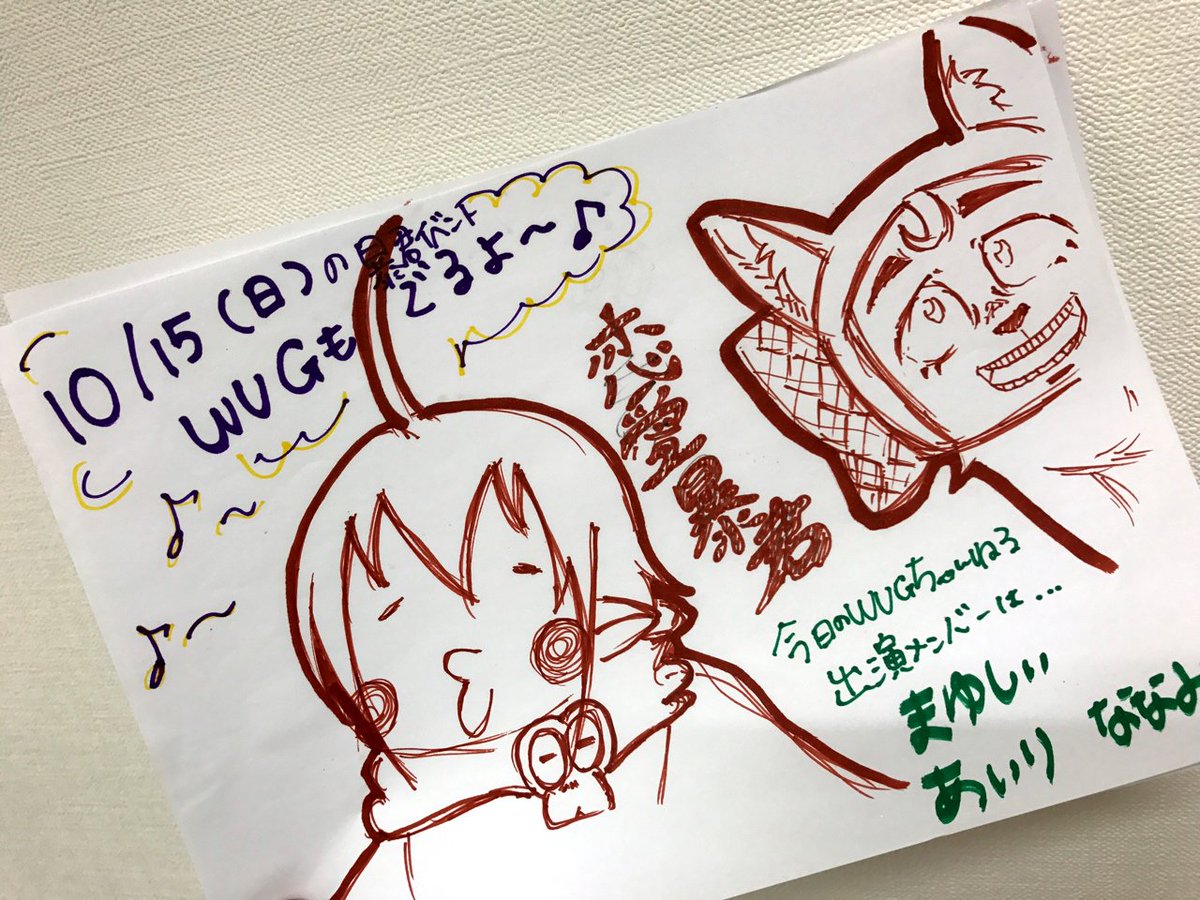 10/15(日)の暴君イベント
WUGも でるよ〜♪
恋愛暴君
今日のWUGちゃんねる
出演メンバーは...
まゆしぃ
あいり ななみ